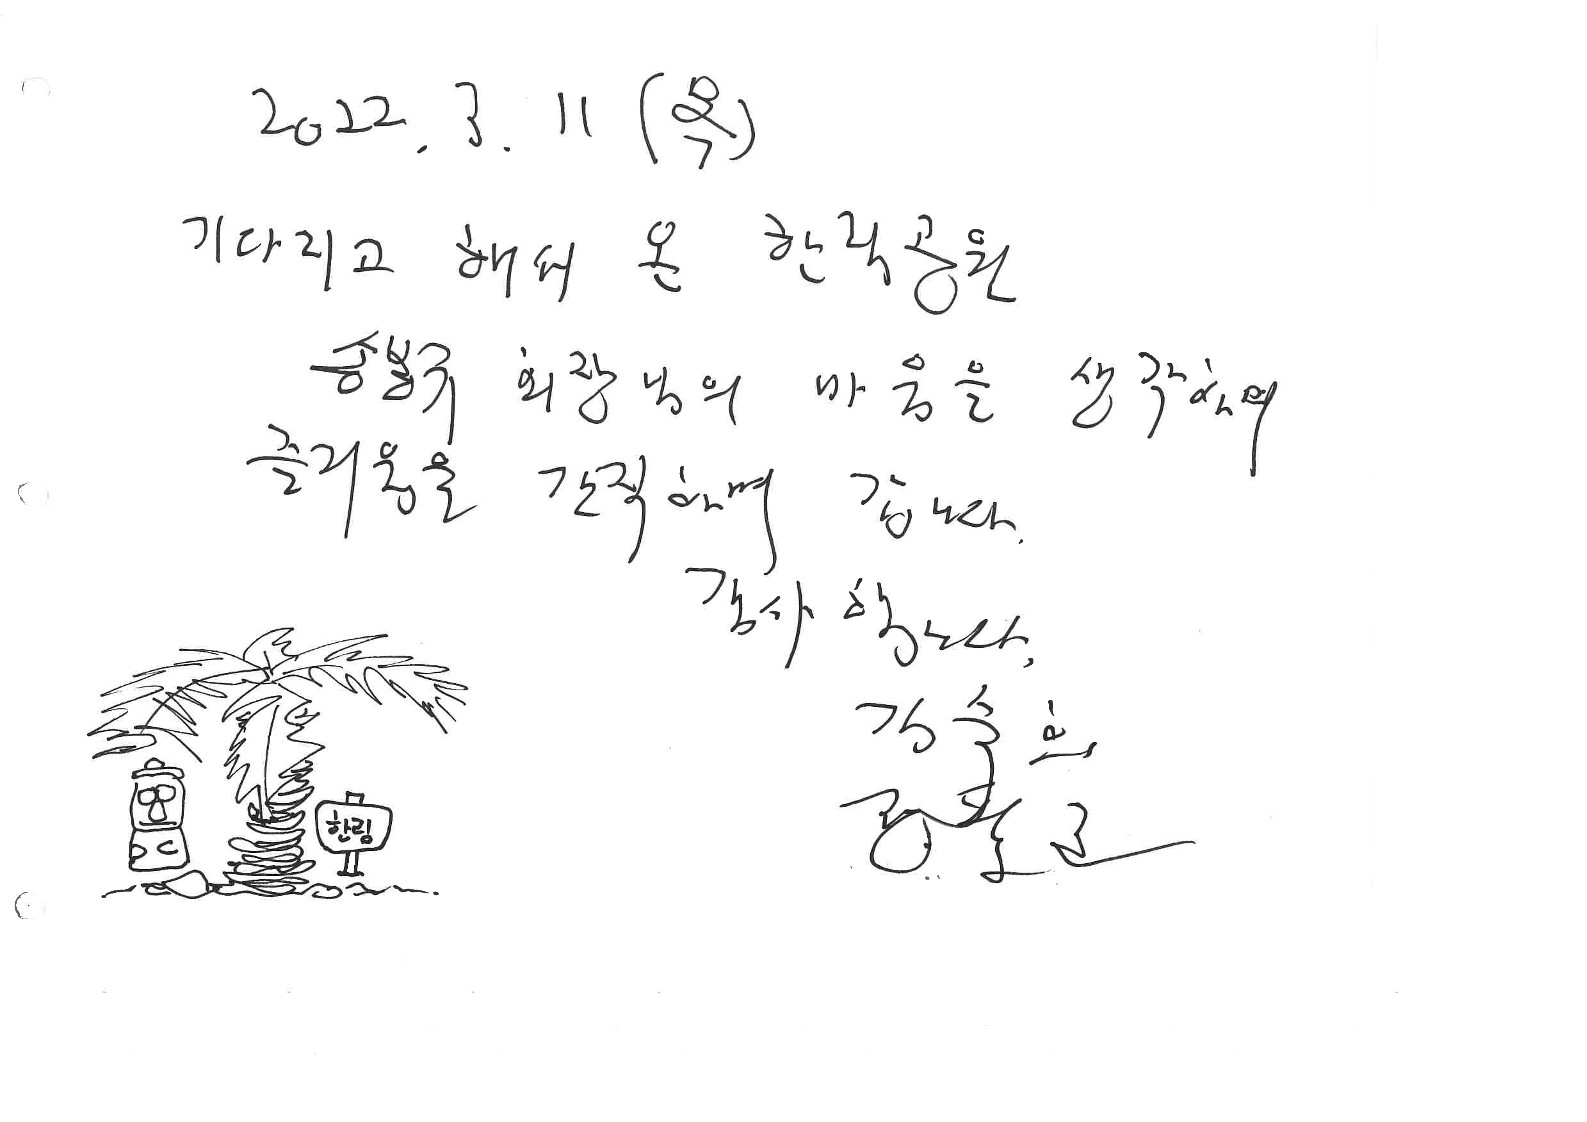 2022. 3. 11 (목)
기다리고 해서 온 한림공원
송봉규 회장님의 마음을 생각하며
즐거움을 간직하며 갑니다.
감사합니다.
한림